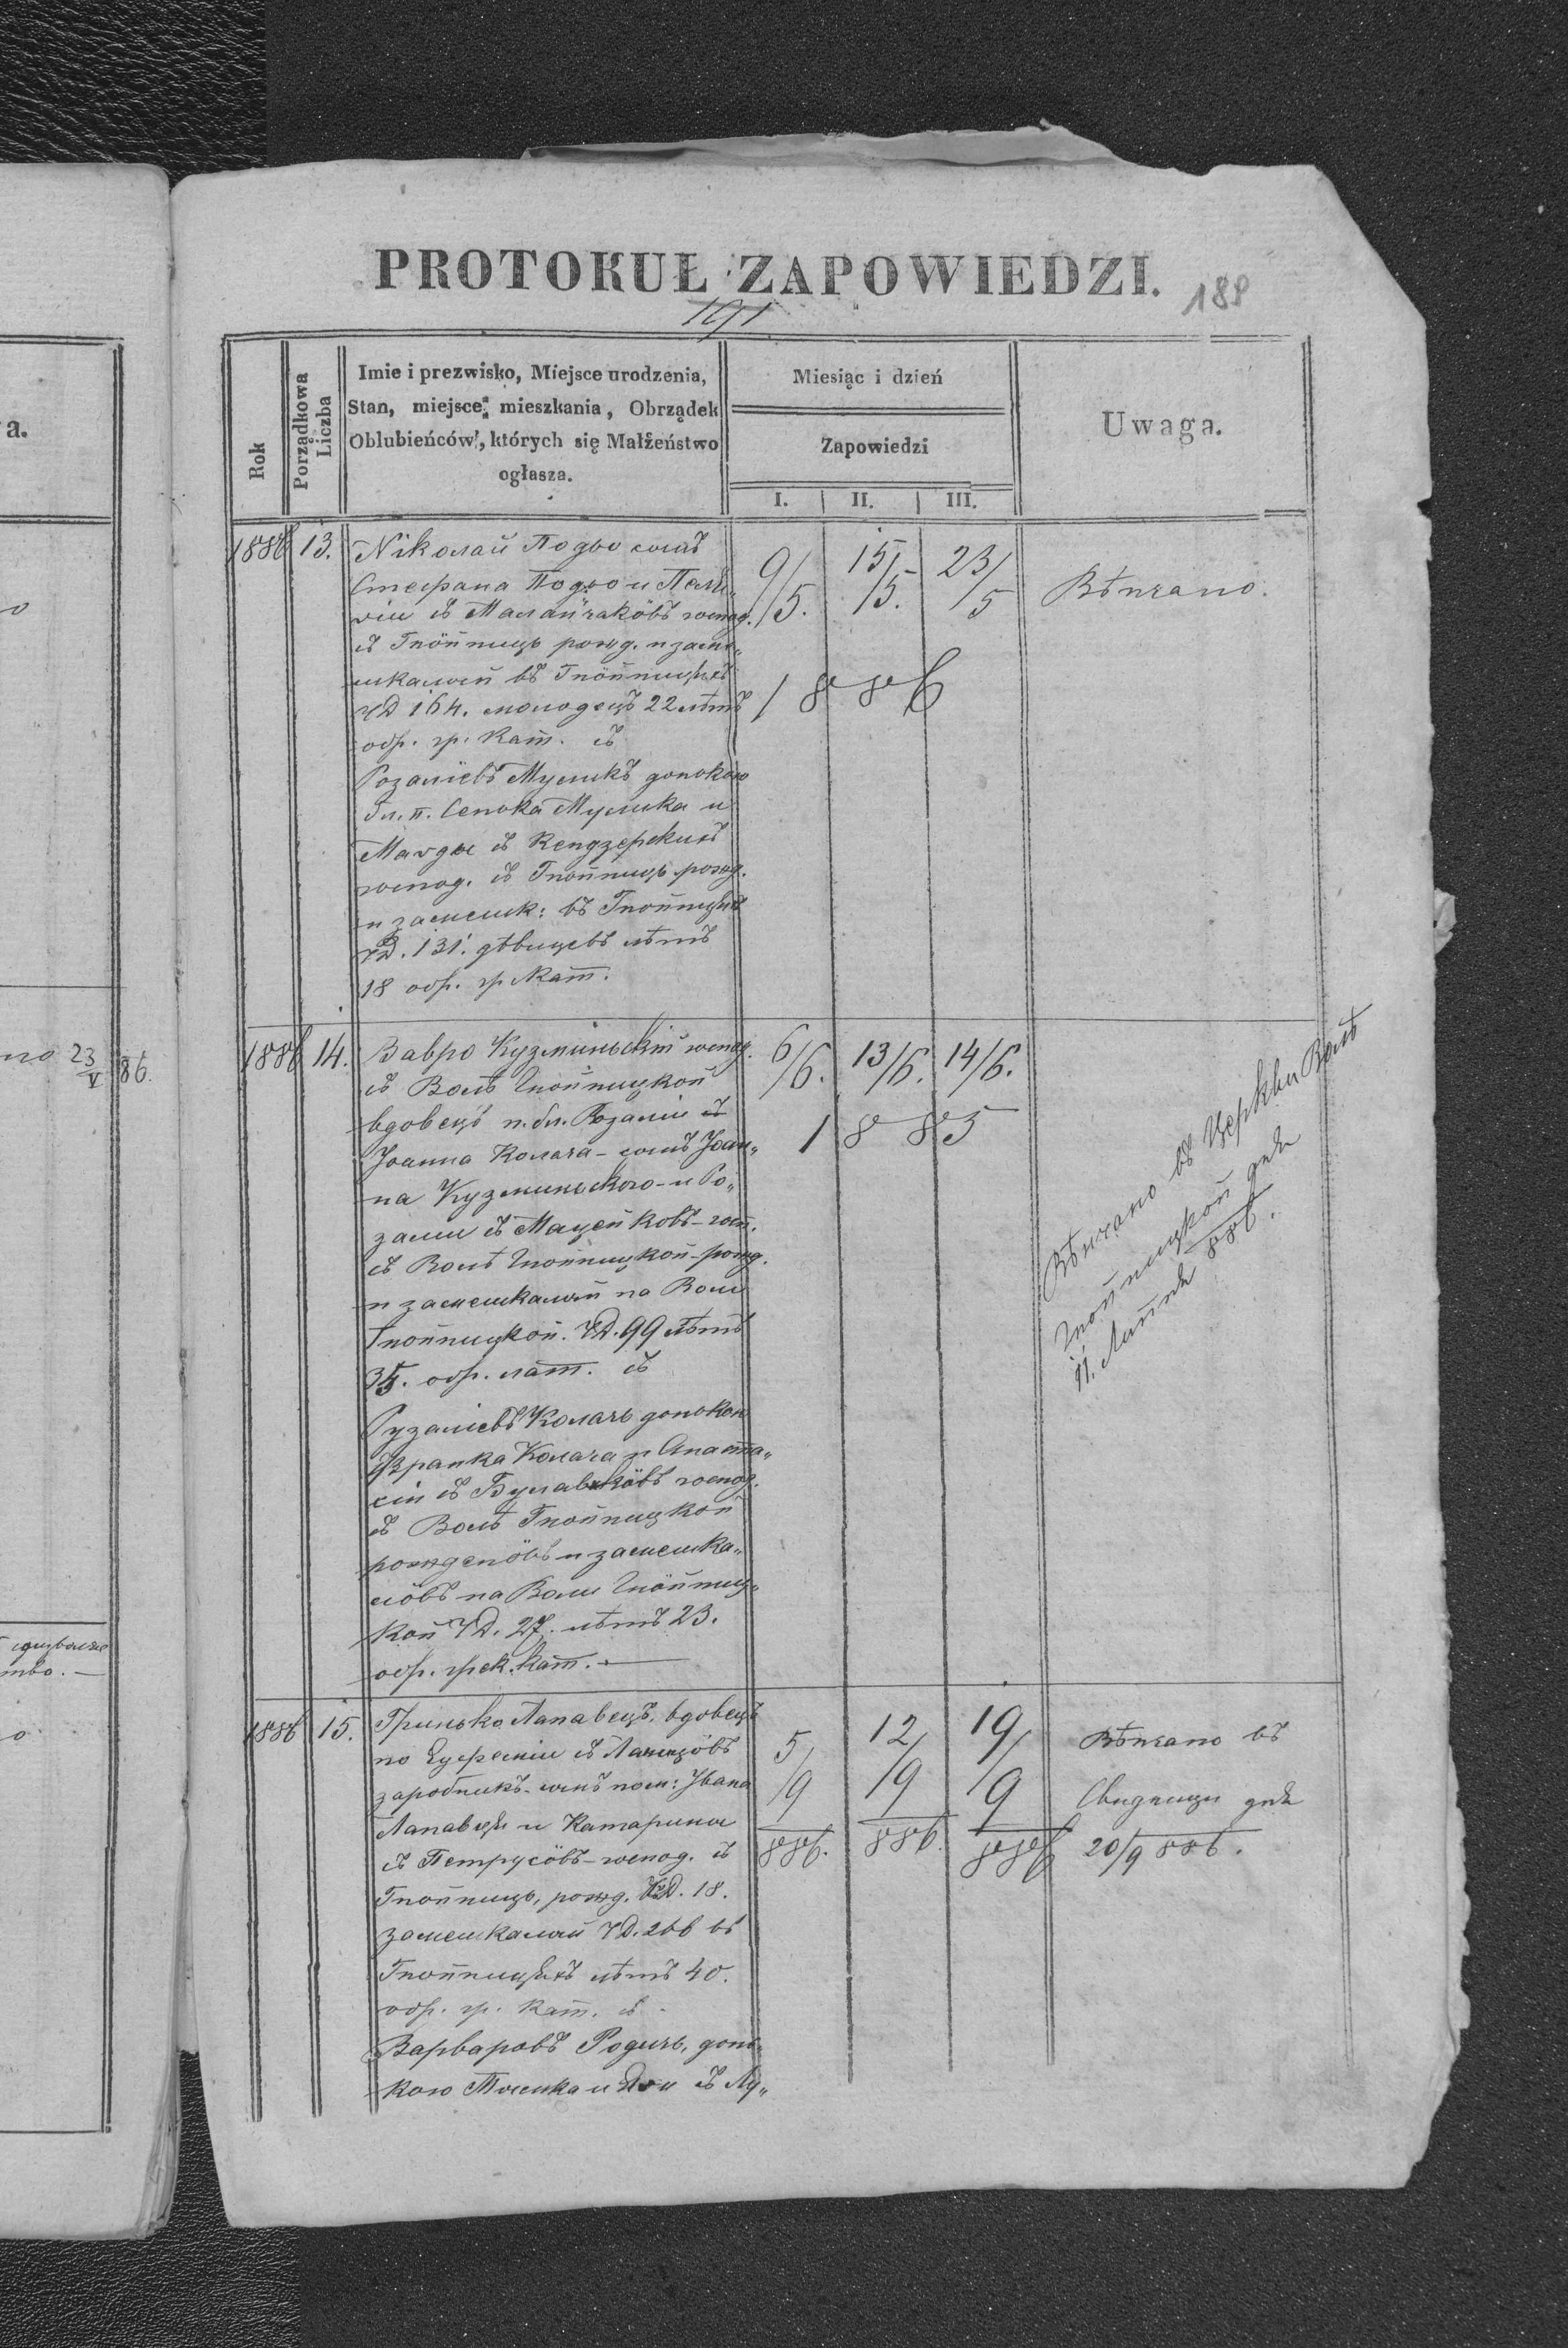 PROTOKUŁ ZAPOWIEDZI.
188
191
Rok
Porządkowa Liczba
Imie i prezwisko, Miejsce urodzenia,
Stan, miejsce mieszkania, Obrządek
Oblubieńców, których się Małżeństwo
ogłasza.
Miesiąc i dzień
Zapowiedzi
I. II. III.
Uwaga.
1886 13. Николай Подьо сынъ
Стефана Подьо и
съ господ.
съ Гнойницъ рожд. и заме„
шкалый въ Гнойницяхъ
ЧД 164. молодецъ 22 лѣтъ
обр. гр. кат. съ
Розаліевъ Мусикъ донькою
бл. п. Сенька Мусика и
Магды съ
господ. съ Гнойницъ рожд.
и замешк: въ Гнойницяхъ
ЧД. 131. дѣвицевъ лѣтъ
18 обр. гр. кат.
9/5. 15/5. 23/5
1886
Вѣнчано.
1886 14. Вавро Кузминьскій господ.
съ Волѣ Гнойницкой
вдовецъ п. бл. Розаліи съ
Іоанна Колача - сынъ Іоан„
на Кузминьского - и Ро„
заліи съ Мацейковъ - госп.
съ Волѣ Гнойницкой - рожд.
и замешкалый на Воли
Гнойницкой. ЧД. 99 лѣтъ
35. обр. лат. съ
Рузаліевъ Колачъ донькою
Франка Колача и Анаста„
сіи съ господ.
съ Волѣ Гнойницкой
рожденовъ и замешка„
ловъ на Воли Гнойниц„
кой ЧД. 27. лѣтъ 23.
обр. грек. кат. —
6/6. 13/6. 14/6.
1885
Вѣнчано въ Церкви Волѣ
Гнойницкой дня
11. Липня 886.
1886 15. Гринько Лапавецъ, вдовецъ
по Евфеміи съ
заробникъ - сынъ пок: Ивана
Лапавця и Катарины
съ Петрусöвъ - господ. съ
Гнойницъ, рожд. ЧД. 18.
замешкалый ЧД. 266 въ
Гнойницяхъ лѣтъ 40.
обр. гр. кат. съ -
Варваровъ Родичъ, донь„
кою Тимка и съ Лу„
5/9 886. 12/9 886. 19/9 886
Вѣнчано въ
Свидници дня
20/9 886.
а.
но 23/V 86.